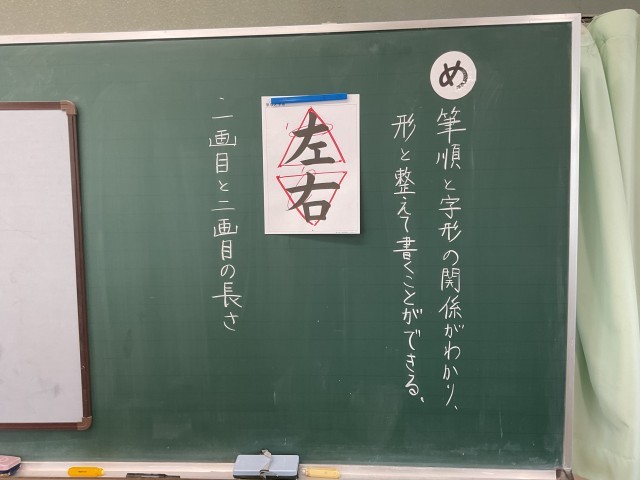 め
筆順と字形の関係がわかり、
形と整えて書くことができる。
左
右
一画目と二画目の長さ